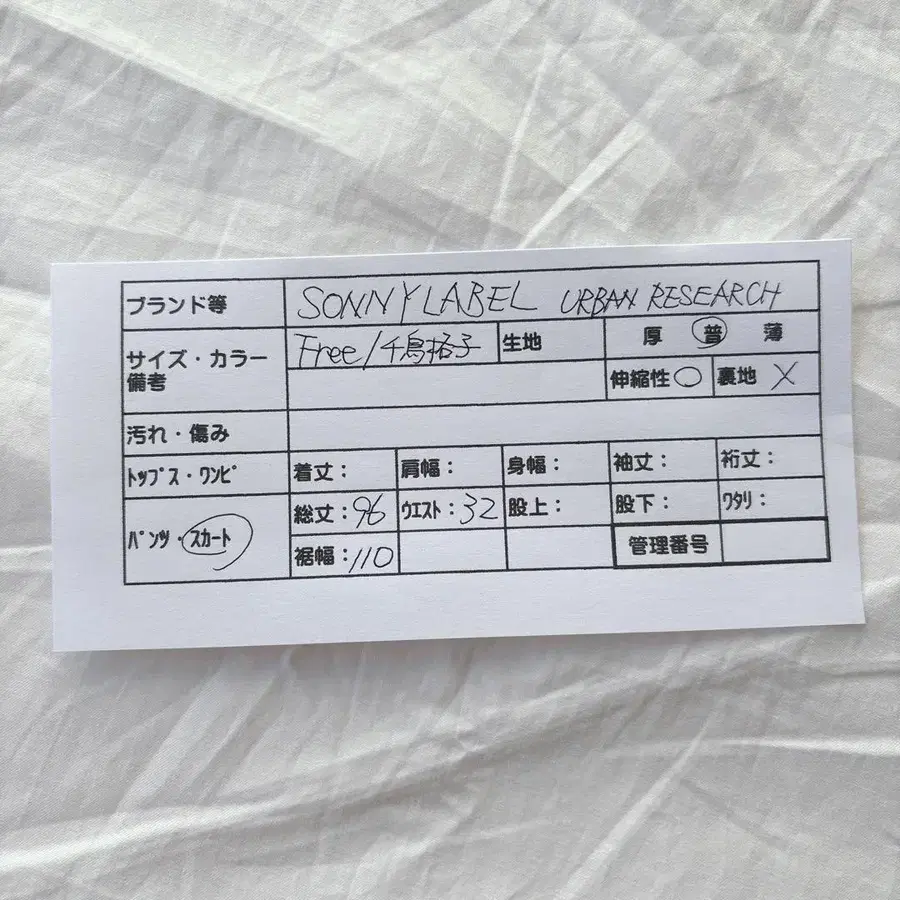 ブランド等 SONNY LABEL URBAN RESEARCH
サイズ・カラー Free/千鳥格子 生地 厚 普 薄
備考 伸縮性 ○ 裏地 X
汚れ・傷み
トップス・ワンピ 着丈: 肩幅: 身幅: 袖丈: 裄丈:
パンツ・スカート 総丈:96 ウエスト:32 股上: 股下: ワタリ:
裾幅:110 管理番号